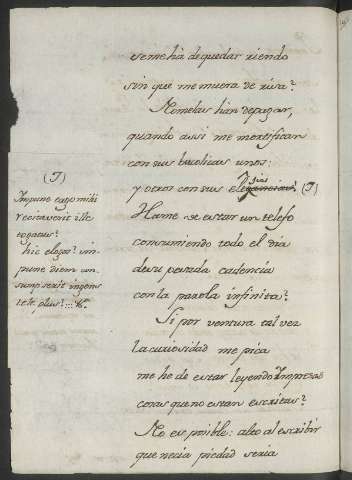 se me hà de quedar riendo
sin que me muera de risa?
No me las han de pagar,
quando assi me mortifican
con sus bucolicas unos:
y otros con sus elegias? (J)
Hame de estar un Telefo
consumiendo todo el dia
de su pesada cadencia
con la parola infinita?
Si por ventura tal vez
la curiosidad me pica
me he de estar leyendo Impresas
cosas que no estan escritas?
No es posible: alto al escribir
que necia piedad seria
(J)
Impune ergo mihi
recitaverit ille
togatas?
hic elegos? im-
pune diem con-
sumpserit ingens
Tele plus? ... &c.